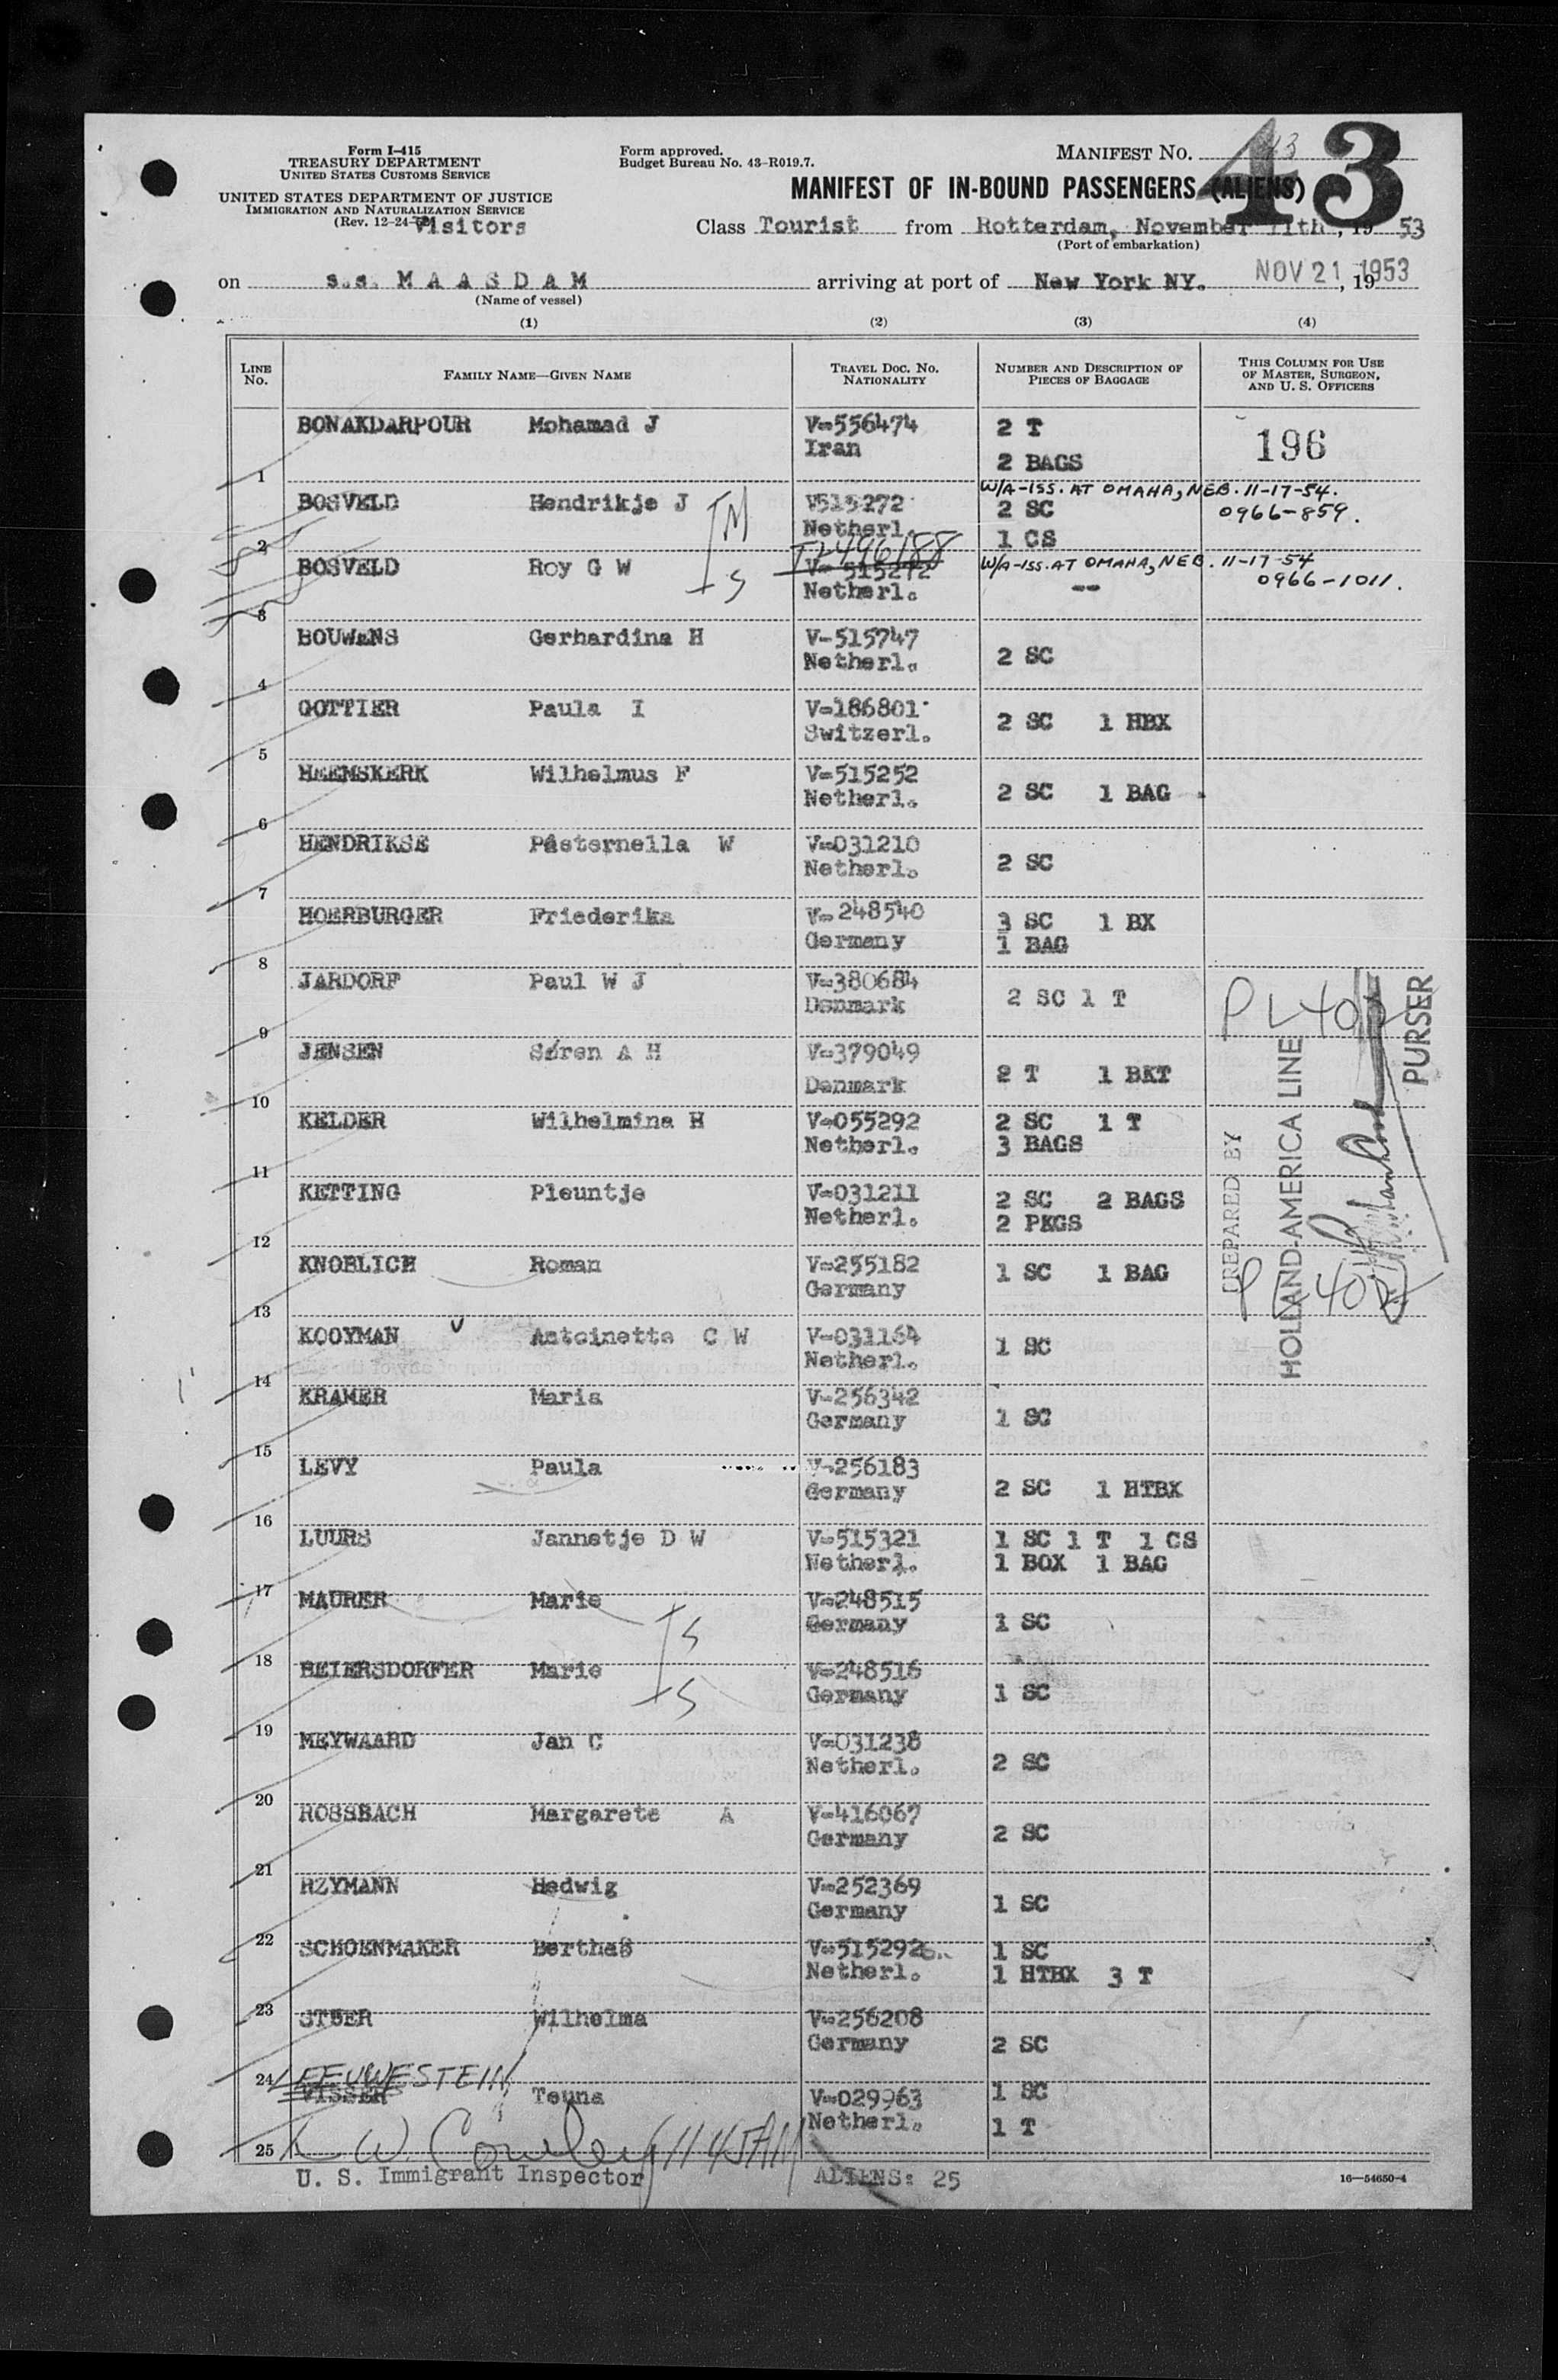 Form I-415
TREASURY DEPARTMENT
UNITED STATES CUSTOMS SERVICE
UNITED STATES DEPARTMENT OF JUSTICE
IMMIGRATION AND NATURALIZATION SERVICE
(Rev. 12-24-
Visitors
Form approved.
Budget Bureau No. 43-R019.7.
MANIFEST NO. 43
43
MANIFEST OF IN-BOUND PASSENGERS (ALIENS)
Class Tourist from Rotterdam, November 11th, 1953
(Port of embarkation)
on s.s. MAASDAM arriving at port of New York NY. NOV 21 1953, 19
(Name of vessel)
(1) (2) (3) (4)
LINE No. FAMILY NAME—GIVEN NAME TRAVEL DOC. NO. NATIONALITY NUMBER AND DESCRIPTION OF PIECES OF BAGGAGE THIS COLUMN FOR USE OF MASTER, SURGEON, AND U. S. OFFICERS
BONAKDARPOUR Mohamad J V-556474 2 T 196
1 Iran 2 BAGS
W/A-ISS. AT OMAHA, NEB. 11-17-54.
BOSVELD Hendrikje J M V515272 2 SC 0966-859.
2 Netherl. 1 CS
I2496188
W/A-ISS. AT OMAHA, NEB. 11-17-54
BOSVELD Roy G W S V-515272 -- 0966-1011.
3 Netherl.
BOUWaNS Gerhardina H V-515747 2 SC
4 Netherl.
GOTTIER Paula I V-186801 2 SC 1 HBX
5 Switzerl.
HEEMSKERK Wilhelmus F V-515252 2 SC 1 BAG
6 Netherl.
HENDRIKSE W V-031210 2 SC
7 Netherl.
HOERBURGER Friederika V-248540 3 SC 1 BX
8 Germany 1 BAG
JARDORF Paul W J V-380684 2 SC 1 T
9 Denmark
JENSEN Søren A H V-379049 2 T 1 BKT
10 Denmark
KELDER Wilhelmina H V-055292 2 SC 1 T
11 Netherl. 3 BAGS
KETTING Pleuntje V-031211 2 SC 2 BAGS
12 Netherl. 2 PKGS
KNOBLICH Roman V-255182 1 SC 1 BAG
13 Germany
KOOYMAN Antoinette C W V-031164 1 SC
14 Netherl.
KRAMER Maria V-256342 1 SC
15 Germany
LEVY Paula V-256183 2 SC 1 HTBX
16 Germany
LUURS Jannetje D W V-515321 1 SC 1 T 1 CS
17 Netherl. 1 BOX 1 BAG
MAURER Marie S V-248515 1 SC
18 Germany
BEIERSDORFER Marie S V-248516 1 SC
19 Germany
MEYWAARD Jan C V-031238 2 SC
20 Netherl.
ROSSBACH Margarete A V-416067 2 SC
21 Germany
RZYMANN Hedwig V-252369 1 SC
22 Germany
SCHOENMAKER BerthaS V-515292 1 SC
23 Netherl. 1 HTBX 3 T
STÜER Wilhelma V-256208 2 SC
24 Germany
LEEUWESTEIN
VISSER Teuna V-029963 1 SC
25 Netherl. 1 T
L W Cowley 1145AM
U. S. Immigrant Inspector ALIENS: 25
16—54650-4
PREPARED BY
HOLLAND-AMERICA LINE
PURSER